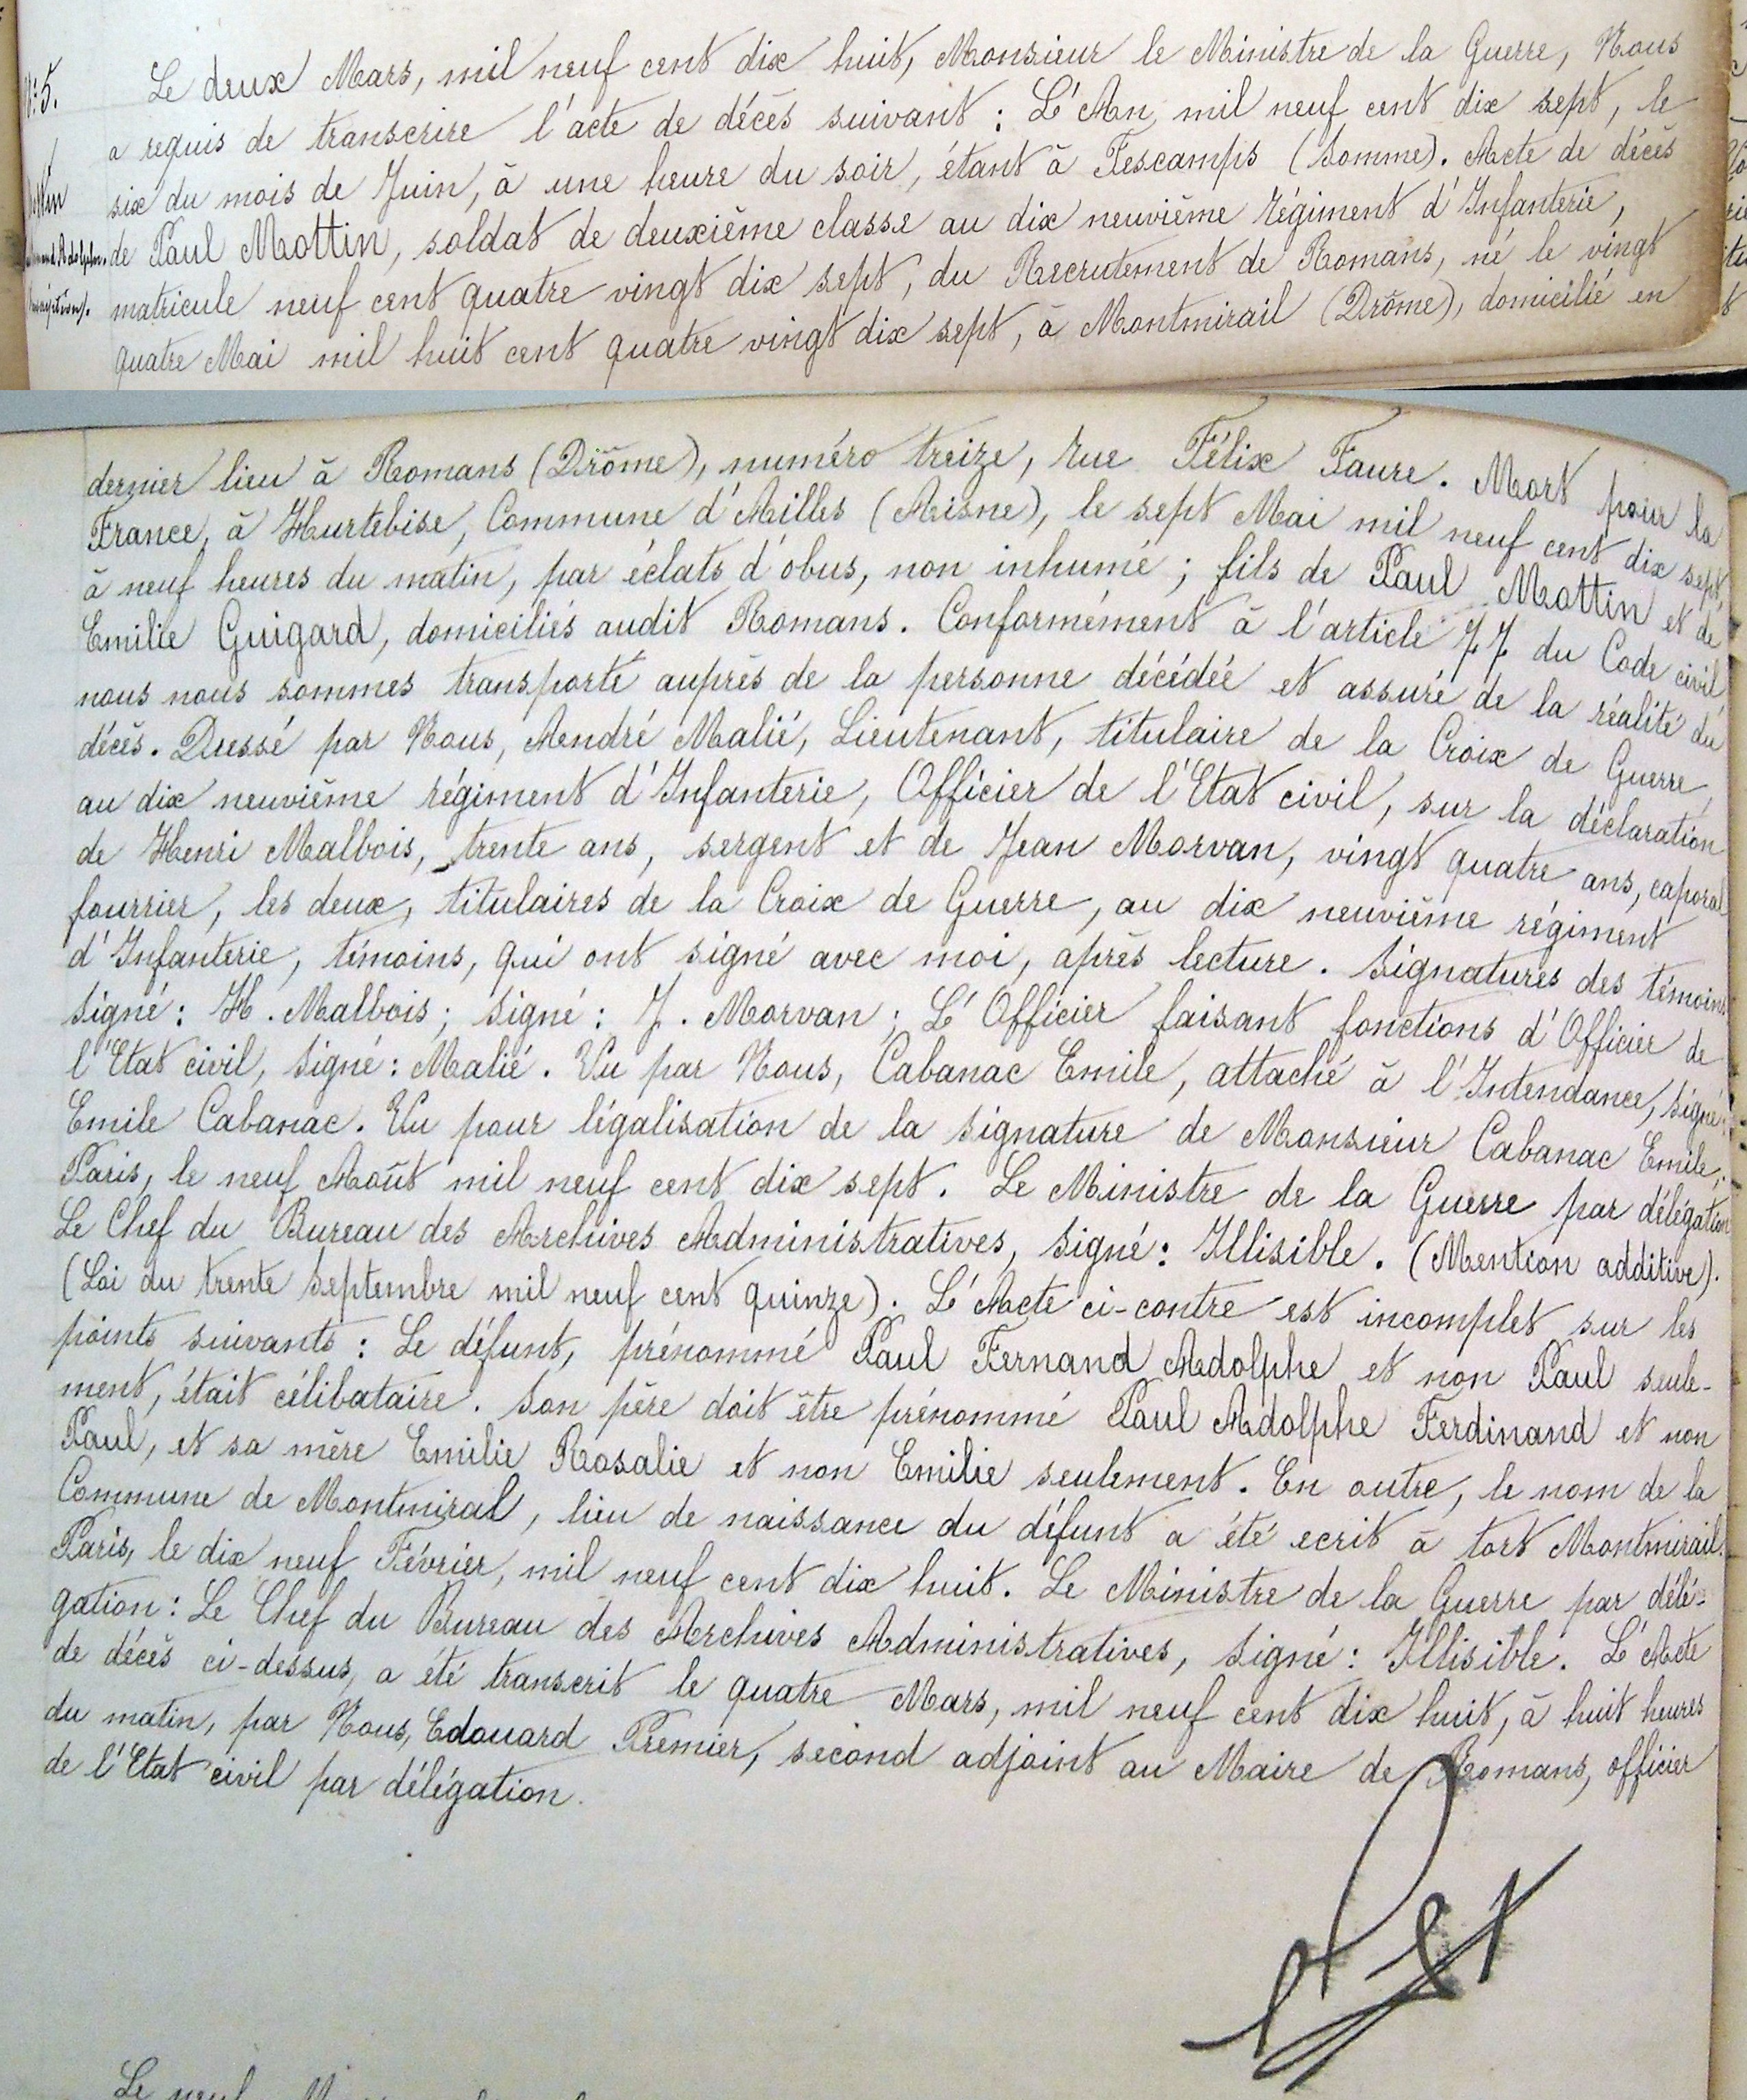 N° 5.
Le deux Mars, mil neuf cent dix huit, Monsieur le Ministre de la Guerre, Nous
a requis de transcrire l'acte de décès suivant : L'An mil neuf cent dix sept, le
six du mois de Juin, à une heure du soir, étant à Fescamps (Somme). Acte de décès
de Paul Mottin, soldat de deuxième classe au dix neuvième régiment d'Infanterie,
matricule neuf cent quatre vingt dix sept, du Recrutement de Romans, né le vingt
quatre Mai mil huit cent quatre vingt dix sept, à Montmirail (Drôme), domicilié en
dernier lieu à Romans (Drôme), numéro treize, rue Félix Faure. Mort pour la
France, à Hurtebise, Commune d'Ailles (Aisne), le sept Mai mil neuf cent dix sept,
à neuf heures du matin, par éclats d'obus, non inhumé ; fils de Paul Mottin et de
Emilie Guigard, domiciliés audit Romans. Conformément à l'article 77 du Code civil
nous nous sommes transporté auprès de la personne décédée et assuré de la réalité du
décès. Dressé par Nous, André Malié, Lieutenant, titulaire de la Croix de Guerre,
au dix neuvième régiment d'Infanterie, Officier de l'Etat civil, sur la déclaration
de Henri Malbois, trente ans, sergent et de Jean Morvan, vingt quatre ans, caporal
fourrier, les deux, titulaires de la Croix de Guerre, au dix neuvième régiment
d'Infanterie, témoins, qui ont signé avec moi, après lecture. Signatures des témoins
Signé : H. Malbois ; Signé : J. Morvan ; L'Officier faisant fonctions d'Officier de
l'Etat civil, Signé : Malié. Vu par Nous, Cabanac Emile, attaché à l'Intendance, signé :
Emile Cabanac. Vu pour légalisation de la signature de Monsieur Cabanac Emile ;
Paris, le neuf Août mil neuf cent dix sept. Le Ministre de la Guerre par délégation
Le Chef du Bureau des Archives Administratives, Signé : Illisible. (Mention additive).
(Loi du trente Septembre mil neuf cent quinze). L'Acte ci-contre est incomplet sur les
points suivants : Le défunt, prénommé Paul Fernand Adolphe et non Paul seule-
ment, était célibataire. Son père doit être prénommé Paul Adolphe Ferdinand et non
Paul, et sa mère Emilie Rosalie et non Emilie seulement. En outre, le nom de la
Commune de Montmiral, lieu de naissance du défunt a été ecrit à tort Montmirail.
Paris, le dix neuf Février, mil neuf cent dix huit. Le Ministre de la Guerre par délé-
gation : Le Chef du Bureau des Archives Administratives, Signé : Illisible. L'Acte
de décès ci-dessus, a été transcrit le quatre Mars, mil neuf cent dix huit, à huit heures
du matin, par Nous, Edouard Premier, second adjoint au Maire de Romans, officier
de l'Etat civil par délégation.
Le neuf